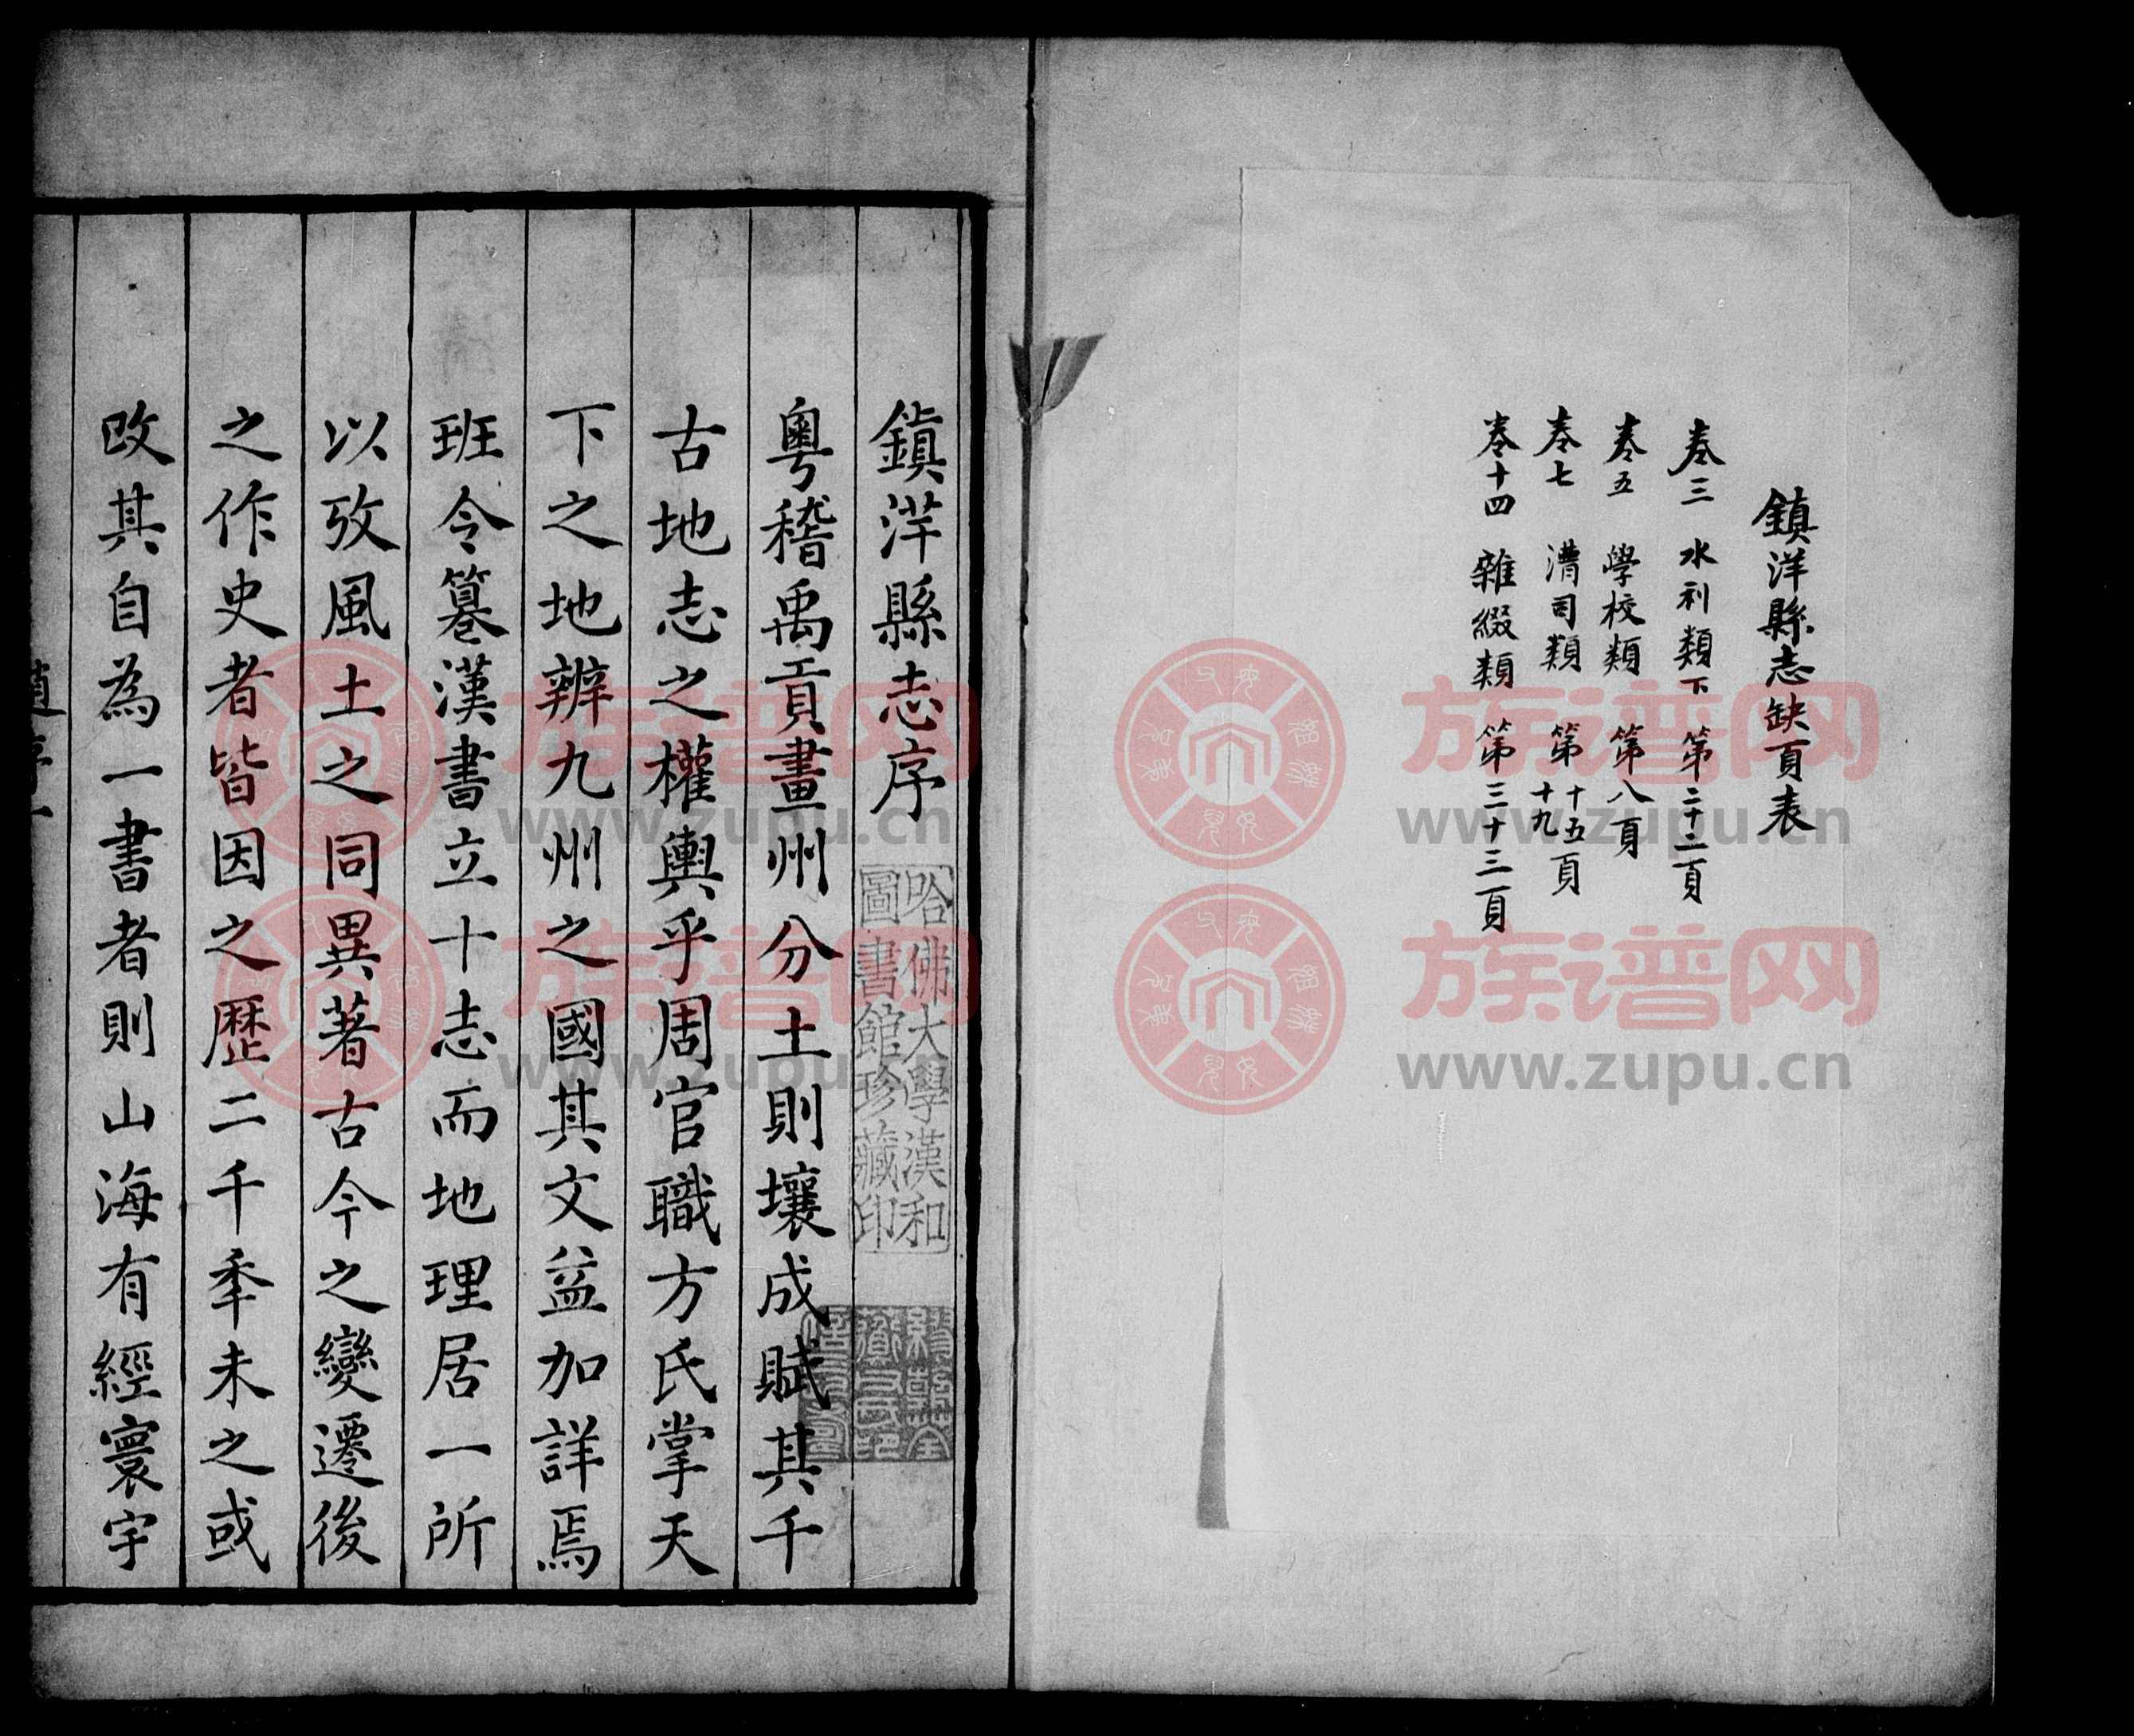 鎮洋縣志缺頁表
卷三 水利類下 第二十二頁
卷五 學校類 第八頁
卷七 漕司類 第十五頁
十九
卷十四 雜綴類 第三十三頁
鎮洋縣志序
哈佛大學漢和
圖書館珍藏印
粵稽禹貢畫州分土則壤成賦其千
古地志之權輿乎周官職方氏掌天
下之地辨九州之國其文益加詳焉
班令纂漢書立十志而地理居一所
以攷風土之同異著古今之變遷後
之作史者皆因之歷二千年未之或
改其自為一書者則山海有經寰宇
族谱网
www.zupu.cn
族谱网
www.zupu.cn
族谱网
www.zupu.cn
族谱网
www.zupu.cn